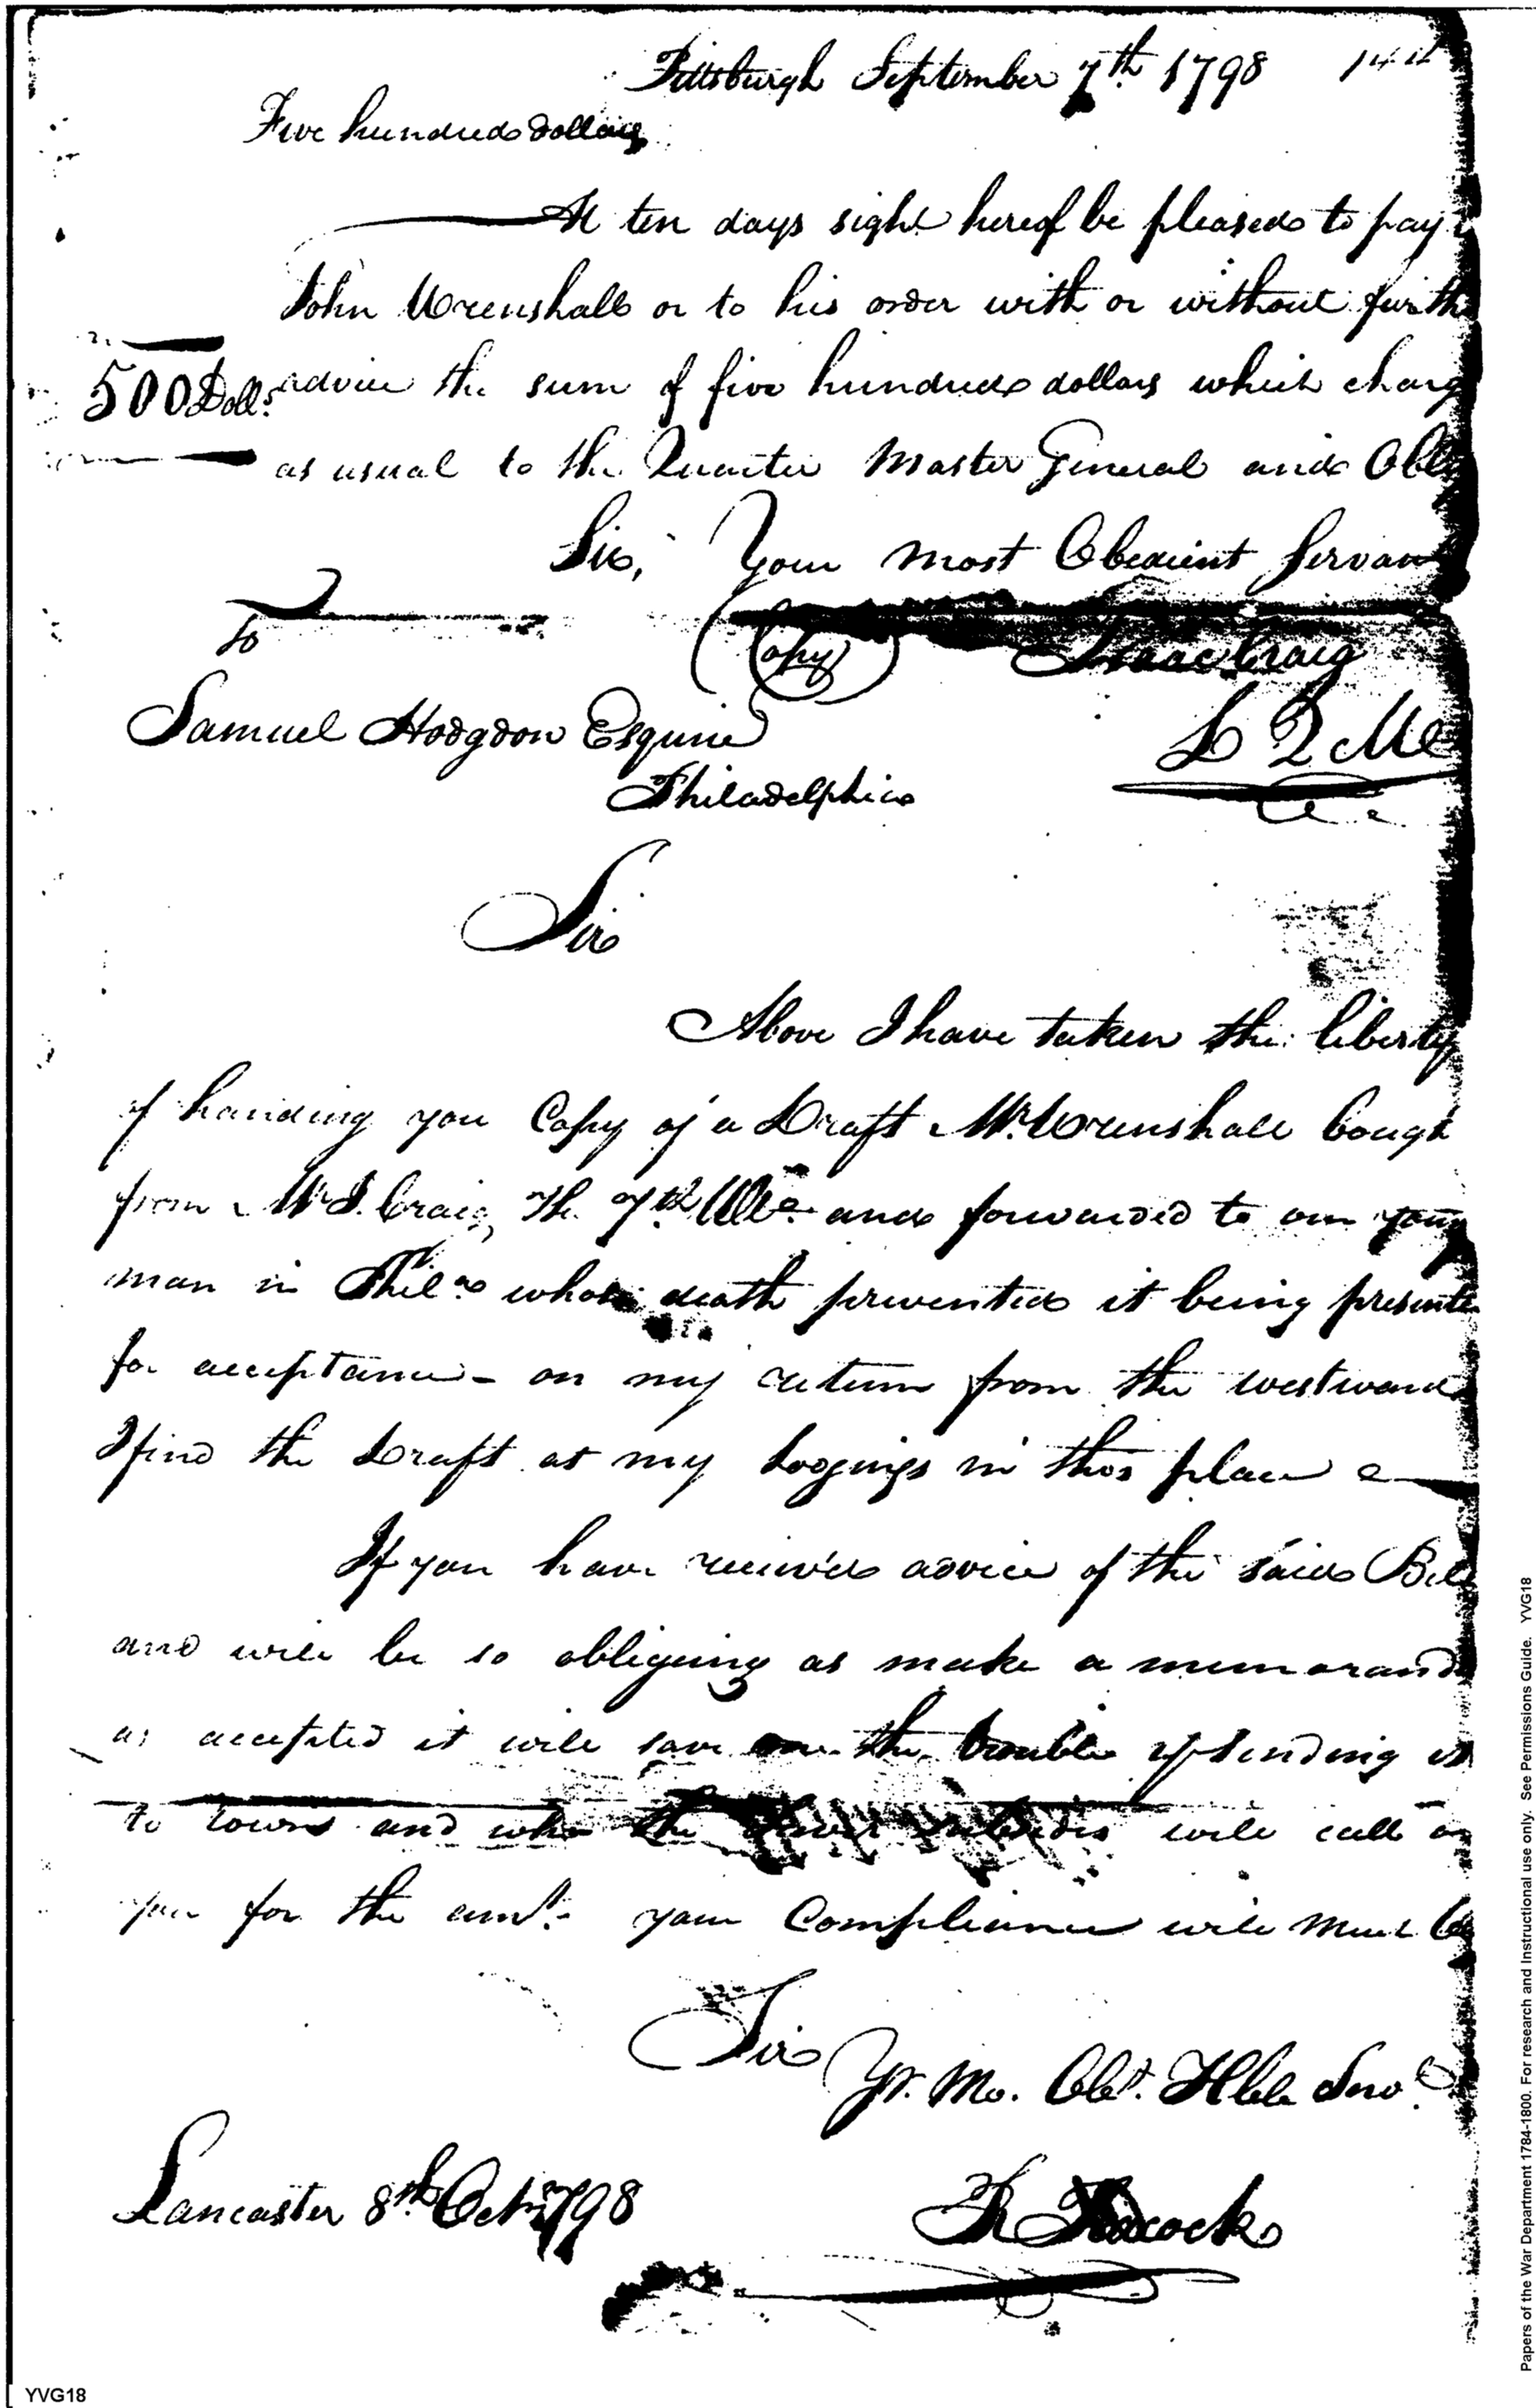 Pittsburgh September 7th 1798 144
Five hundred Dollars
At ten days sight hereof be pleased to pay
John Wrenshall or to his order with or without furth
500 Dolls. advice the sum of five hundred dollars which charg
as usual to the Quarter Master General and Obl
Sir, Your most Obedient Servan
To (Copy) Isaac Craig
Samuel Hodgdon Esquire D Q M
Philadelphia
Sir
Above I have taken the liberty
of handing you Copy of a Draft Mr. Wrenshall bough
from Mr I. Craig, The 7th Ulto. and forwarded to our young
man in Phila whose death prevented it being presente
for acceptance - on my return from the westward
I find the Draft at my Lodgings in this place
If you have receiv'd advice of the said Bill
and will be so obligeing as make a memorand
as accepted it will save me the trouble of sending it
to town and the will call on
you for the amt. your Compliance will Much
Sir
Yr. Mo. Obt. Hble Servt.
Lancaster 8th Octr. 1798
YVG18
Papers of the War Department 1784-1800. For research and instructional use only. See Permissions Guide. YVG18